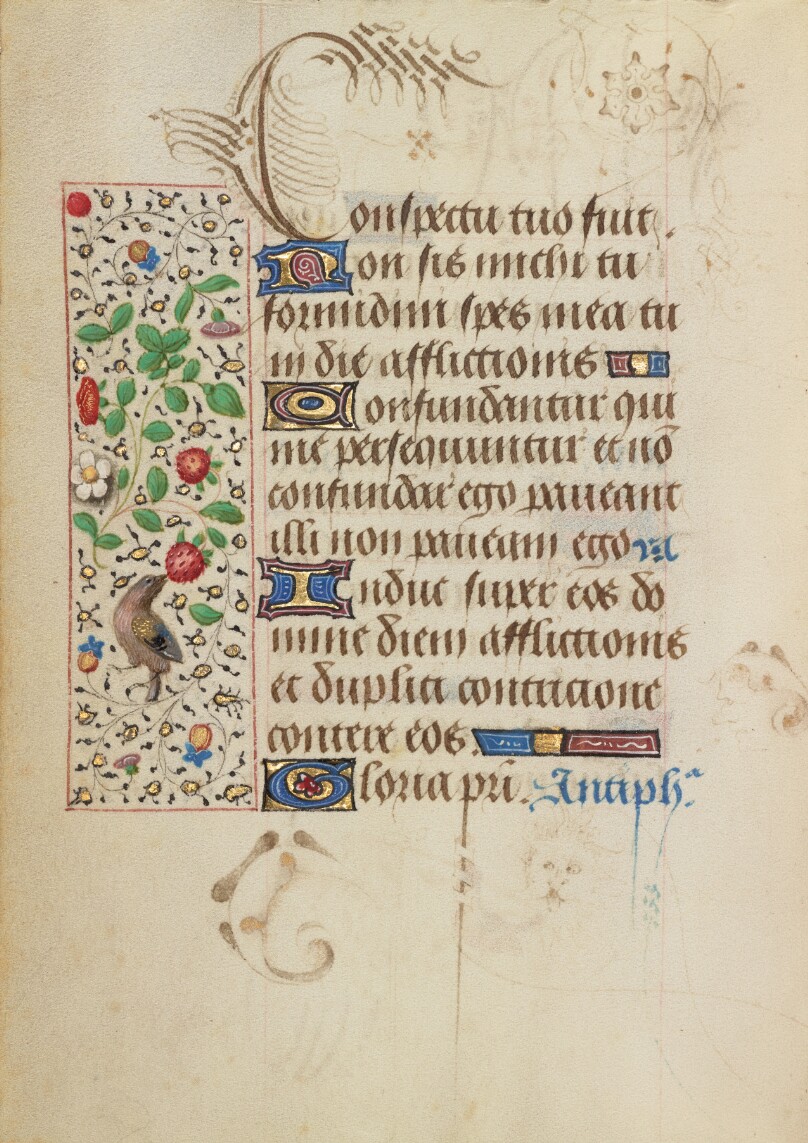 Conspectu tuo fuit.
Non sis michi tu
formidini spes mea tu
in die afflictionis
Confundantur qui
me persequuntur et nō
confundar ego paveant
illi non paueam ego
Induc super eos do
mine diem afflictionis
et duplici contricione
contere eos.
Gloria pri. Antiphᵃ.